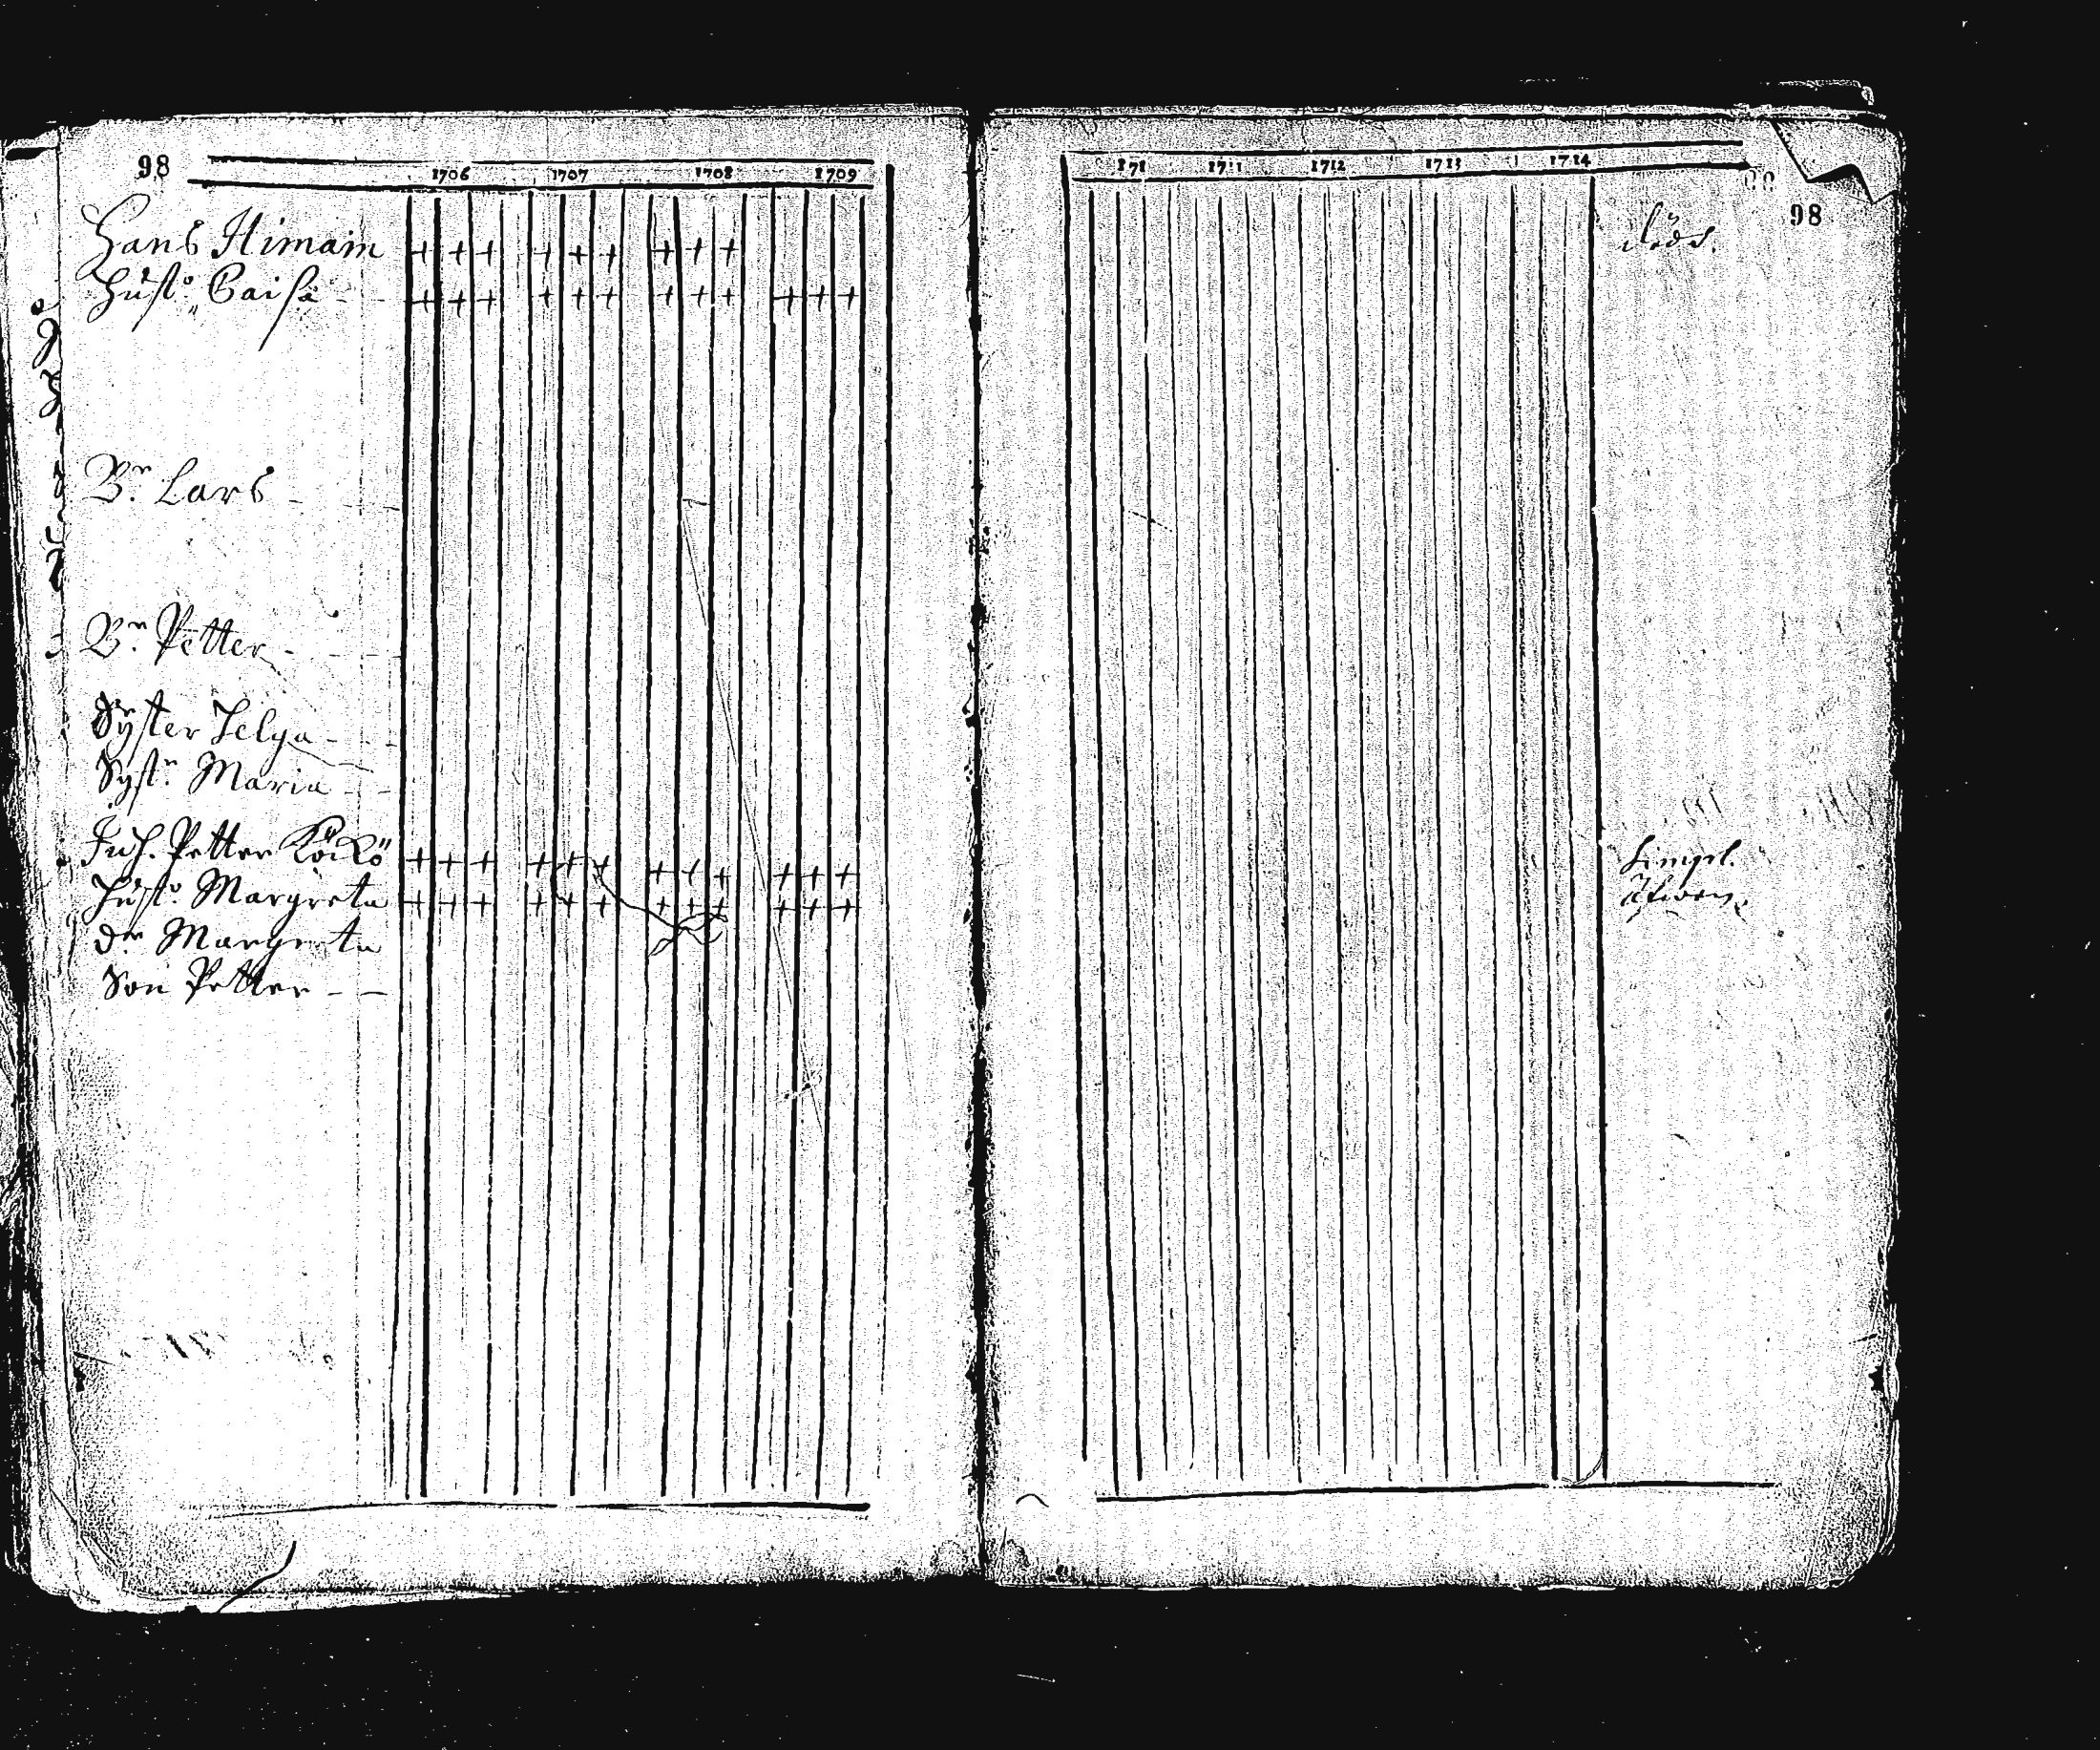 98
1706 1707 1708 1709
Hans Himain + + + + + + + + +
Hust:o Caisa + + + + + + + + + + + +
B:r Lars
B:r Petter
Syster Helga
Syst:r Maria
Inh. Petter + + + + + + + + + + + +
Hust:o Margreta + + + + + + + + + + + +
d:r Margreta
Son Petter
171 1711 1712 1713 1714
98
död.
Simpel.